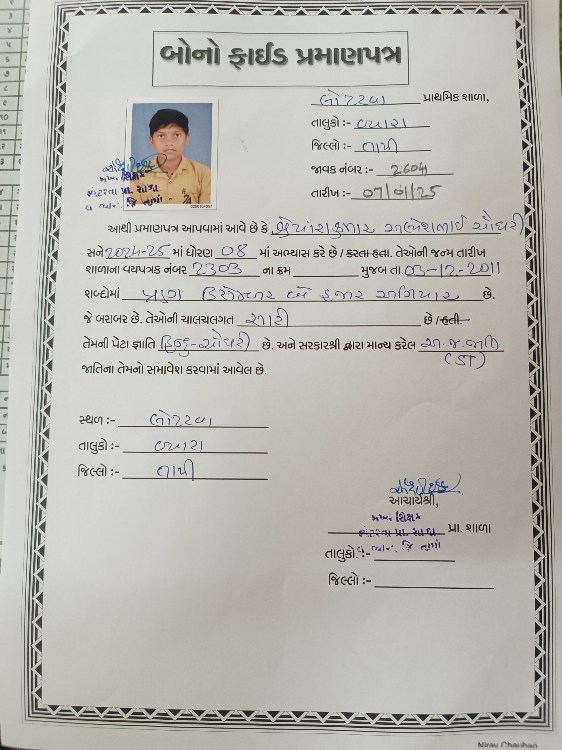 બોનો ફાઈડ પ્રમાણપત્ર
બોરખડી પ્રાથમિક શાળા,
તાલુકો :- વ્યારા
જિલ્લો :- તાપી
જાવક નંબર :- 2604
તારીખ :- 07/01/25
આથી પ્રમાણપત્ર આપવામાં આવે છે કે ચૌધરી
સને 2024-25 માં ધોરણ 08 માં અભ્યાસ કરે છે / કરતા હતા. તેઓની જન્મ તારીખ
શાળાના વયપત્રક નંબર 2303 ના ક્રમ મુજબ તા. 03-12-2011
શબ્દોમાં ત્રણ ડિસેમ્બર બે હજાર અગિયાર છે.
જે બરાબર છે. તેઓની ચાલચલગત સારી છે / હતી.
તેમની પેટા જ્ઞાતિ હિન્દુ-ચૌધરી છે. અને સરકારશ્રી દ્વારા માન્ય કરેલ અ.જ.જાતિ
(ST)
જાતિના તેમનો સમાવેશ કરવામાં આવેલ છે.
સ્થળ :-
તાલુકો :- વ્યારા
જિલ્લો :- તાપી
આચાર્યશ્રી,
શિક્ષક
પ્રા. શાળા
તાલુકો :-
જિલ્લો :-
Nirav Chauhan